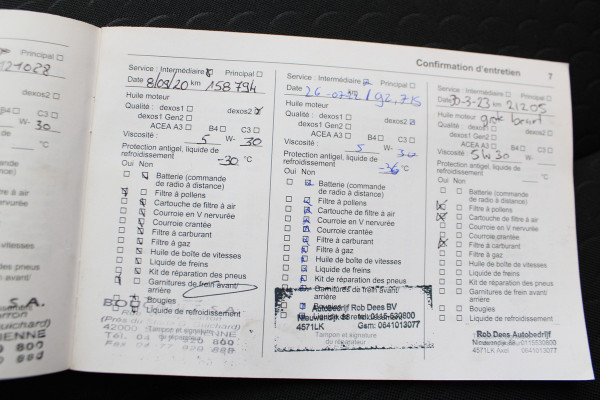 121028
Principal
dexos2
B4 C3
W- 30
°C
à air
nervurée
vitesses
des pneus
S. A.
ENNE
800
Confirmation d'entretien 7
Service : Intermédiaire Principal
Date 8/09/20 km 158 794
Huile moteur
Qualité : dexos1 dexos2
dexos1 Gen2
ACEA A3 B4 C3
Viscosité : 5 W- 30
Protection antigel, liquide de
refroidissement -30 °C
Oui Non
Batterie (commande
de radio à distance)
Filtre à pollens
Cartouche de filtre à air
Courroie en V nervurée
Courroie crantée
Filtre à carburant
Filtre à gaz
Huile de boîte de vitesses
Liquide de freins
Kit de réparation des pneus
Garnitures de frein avant/
arrière
Bougies
Liquide de refroidissement
42000
Tampon et signature
du réparateur
Service : Intermédiaire Principal
Date km
Huile moteur
Qualité : dexos1 dexos2
dexos1 Gen2
ACEA A3 B4 C3
Viscosité : 5 W- 30
Protection antigel, liquide de
refroidissement -36 °C
Oui Non
Batterie (commande
de radio à distance)
Filtre à pollens
Cartouche de filtre à air
Courroie en V nervurée
Courroie crantée
Filtre à carburant
Filtre à gaz
Huile de boîte de vitesses
Liquide de freins
Kit de réparation des pneus
Garnitures de frein avant/
arrière
Bougies
Autobedrijf Rob Dees BV
tel: 0115-530800
4571LK Gsm: 0641013077
Tampon et signature
du réparateur
Service : Intermédiaire Principal
Date 30-3-23 km 21205
Huile moteur
Qualité : dexos1 dexos2
dexos1 Gen2
ACEA A3 B4 C3
Viscosité : 5W30
Protection antigel, liquide de
refroidissement °C
Oui Non
Batterie (commande
de radio à distance)
Filtre à pollens
Cartouche de filtre à air
Courroie en V nervurée
Courroie crantée
Filtre à carburant
Filtre à gaz
Huile de boîte de vitesses
Liquide de freins
Kit de réparation des pneus
Garnitures de frein avant/
arrière
Bougies
Liquide de refroidissement
Rob Dees Autobedrijf
0115530800
4571LK Axel 0641013077